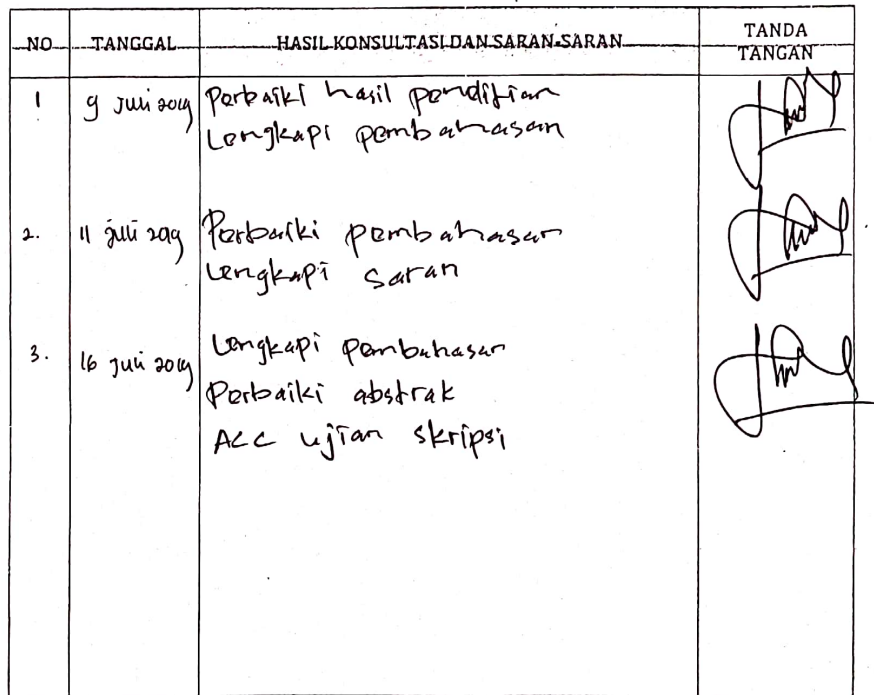 NO TANGGAL HASIL KONSULTASI DAN SARAN-SARAN TANDA TANGAN
1 9 Juli 2019 Perbaiki hasil penelitian
Lengkapi pembahasan
2. 11 Juli 2019 Perbaiki pembahasan
Lengkapi saran
3. 16 Juli 2019 Lengkapi pembahasan
Perbaiki abstrak
ACC ujian skripsi